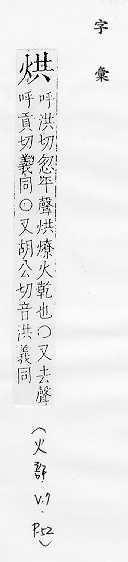 字彙
烘
呼洪切忽平聲烘燎火乾也○又去聲
呼貢切義同○又胡公切音洪義同
(火部.V.7.P.52)